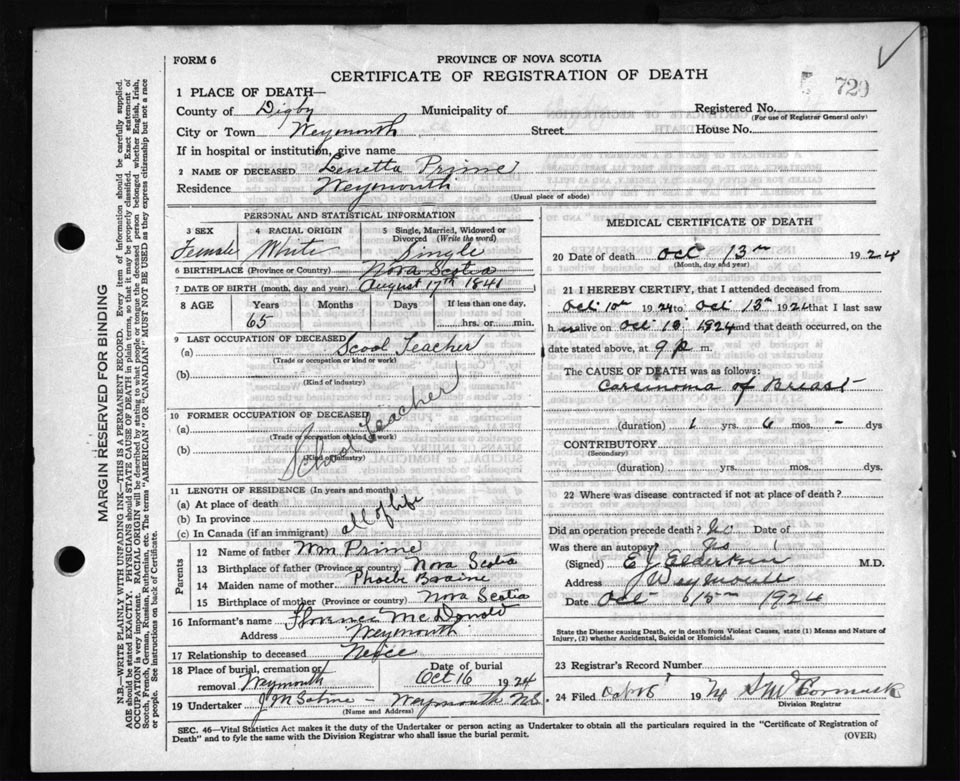 FORM 6
PROVINCE OF NOVA SCOTIA
CERTIFICATE OF REGISTRATION OF DEATH
729
1 PLACE OF DEATH—
County of Digby Municipality of Registered No.
(For use of Registrar General only)
City or Town Weymouth Street House No.
If in hospital or institution, give name
2 NAME OF DECEASED Lenetta Prime
Residence Weymouth
(Usual place of abode)
PERSONAL AND STATISTICAL INFORMATION
3 SEX 4 RACIAL ORIGIN 5 Single, Married, Widowed or Divorced (Write the word)
Female White Single
6 BIRTHPLACE (Province or Country) Nova Scotia
7 DATE OF BIRTH (month, day and year) August 17th 1841
8 AGE Years Months Days If less than one day,
65 hrs. or min.
9 LAST OCCUPATION OF DECEASED
(a) Scool Teacher
(Trade or occupation or kind or work)
(b)
(Kind of industry)
10 FORMER OCCUPATION OF DECEASED
(a)
(Trade or occupation or kind of work)
(b) School Teacher
(Kind of industry)
11 LENGTH OF RESIDENCE (In years and months)
(a) At place of death
(b) In province all of life
(c) In Canada (if an immigrant)
Parents
12 Name of father Wm Prime
13 Birthplace of father (Province or country) Nova Scotia
14 Maiden name of mother Phoebe Braine
15 Birthplace of mother (Province or country) Nova Scotia
16 Informant's name Florence McDonald
Address Weymouth
17 Relationship to deceased Neice
18 Place of burial, cremation or removal Weymouth Date of burial Oct 16 1924
19 Undertaker J M Sabine - Weymouth N.S
(Name and Address)
MEDICAL CERTIFICATE OF DEATH
20 Date of death Oct 13th 1924
(Month, day and year)
21 I HEREBY CERTIFY, that I attended deceased from
Oct 10th 1924 to Oct 13th 1924 that I last saw
h er alive on Oct 13 1924 and that death occurred, on the
date stated above, at 9 p m.
The CAUSE OF DEATH was as follows:
Carsinoma of Breast
(duration) 1 yrs. 6 mos. - dys
CONTRIBUTORY
(Secondary)
(duration) yrs. mos. dys
22 Where was disease contracted if not at place of death?
Did an operation precede death? No Date of
Was there an autopsy? No
(Signed) E J Elderkin M.D.
Address Weymouth
Date Oct 1924
State the Disease causing Death, or in death from Violent Causes, state (1) Means and Nature of Injury, (2) whether Accidental, Suicidal or Homicidal.
23 Registrar's Record Number
24 Filed Oct 1924 McCormack
Division Registrar
SEC. 46—Vital Statistics Act makes it the duty of the Undertaker or person acting as Undertaker to obtain all the particulars required in the "Certificate of Registration of
Death" and to fyle the same with the Division Registrar who shall issue the burial permit. (OVER)
MARGIN RESERVED FOR BINDING
N.B.—WRITE PLAINLY WITH UNFADING INK—THIS IS A PERMANENT RECORD. Every item of information should be carefully supplied.
AGE should be stated EXACTLY. PHYSICIANS should STATE CAUSE OF DEATH in plain terms, so that it may be properly classified. Exact statement of
OCCUPATION is very important. RACIAL ORIGIN will be described by stating to what people or tongue the deceased person belonged whether English, Irish,
Scotch, French, German, Russian, Ruthenian, etc. The terms "AMERICAN" OR "CANADIAN" MUST NOT BE USED as they express citizenship but not a race
or people. See instructions on back of Certificate.